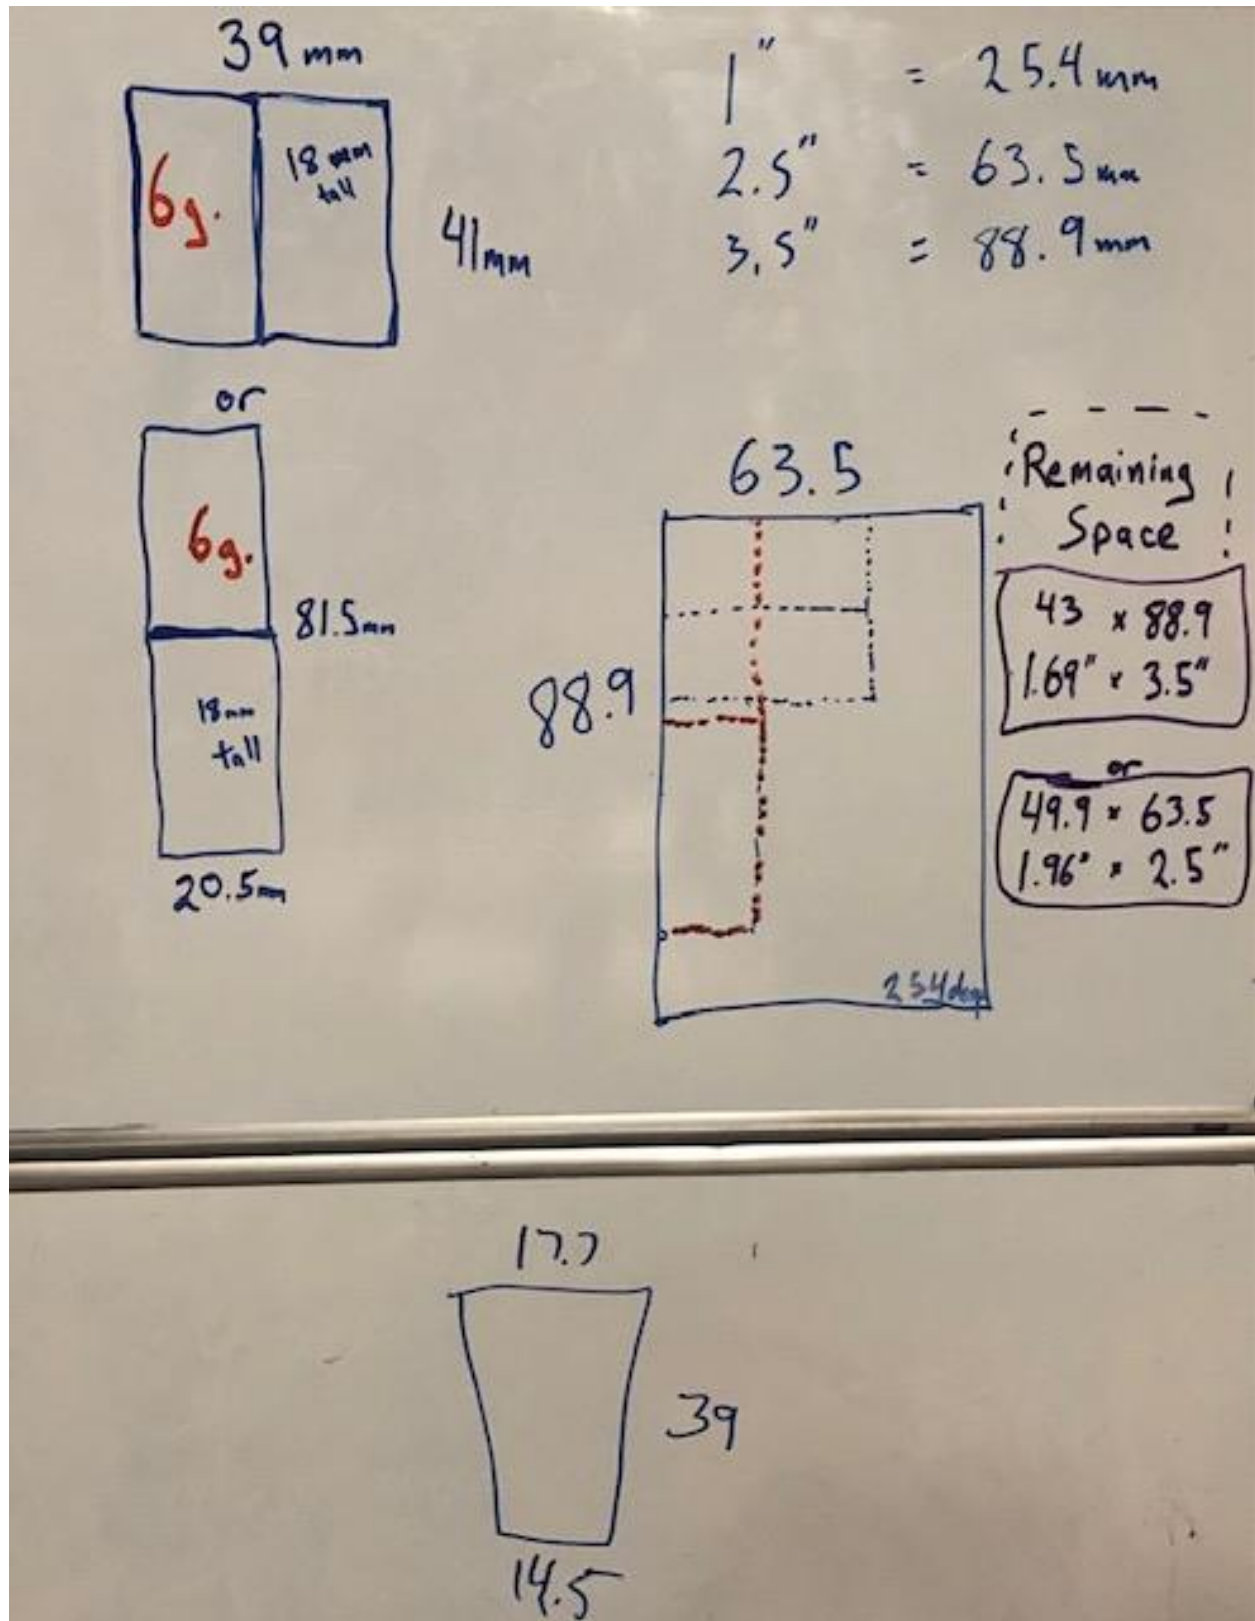 39 mm
6g.
18 mm
tall
41mm
1" = 25.4 mm
2.5" = 63.5 mm
3.5" = 88.9 mm
or
6g.
81.5mm
18mm
tall
20.5mm
63.5
88.9
Remaining
Space
43 x 88.9
1.69" x 3.5"
or
49.9 x 63.5
1.96" x 2.5"
17.7
39
14.5